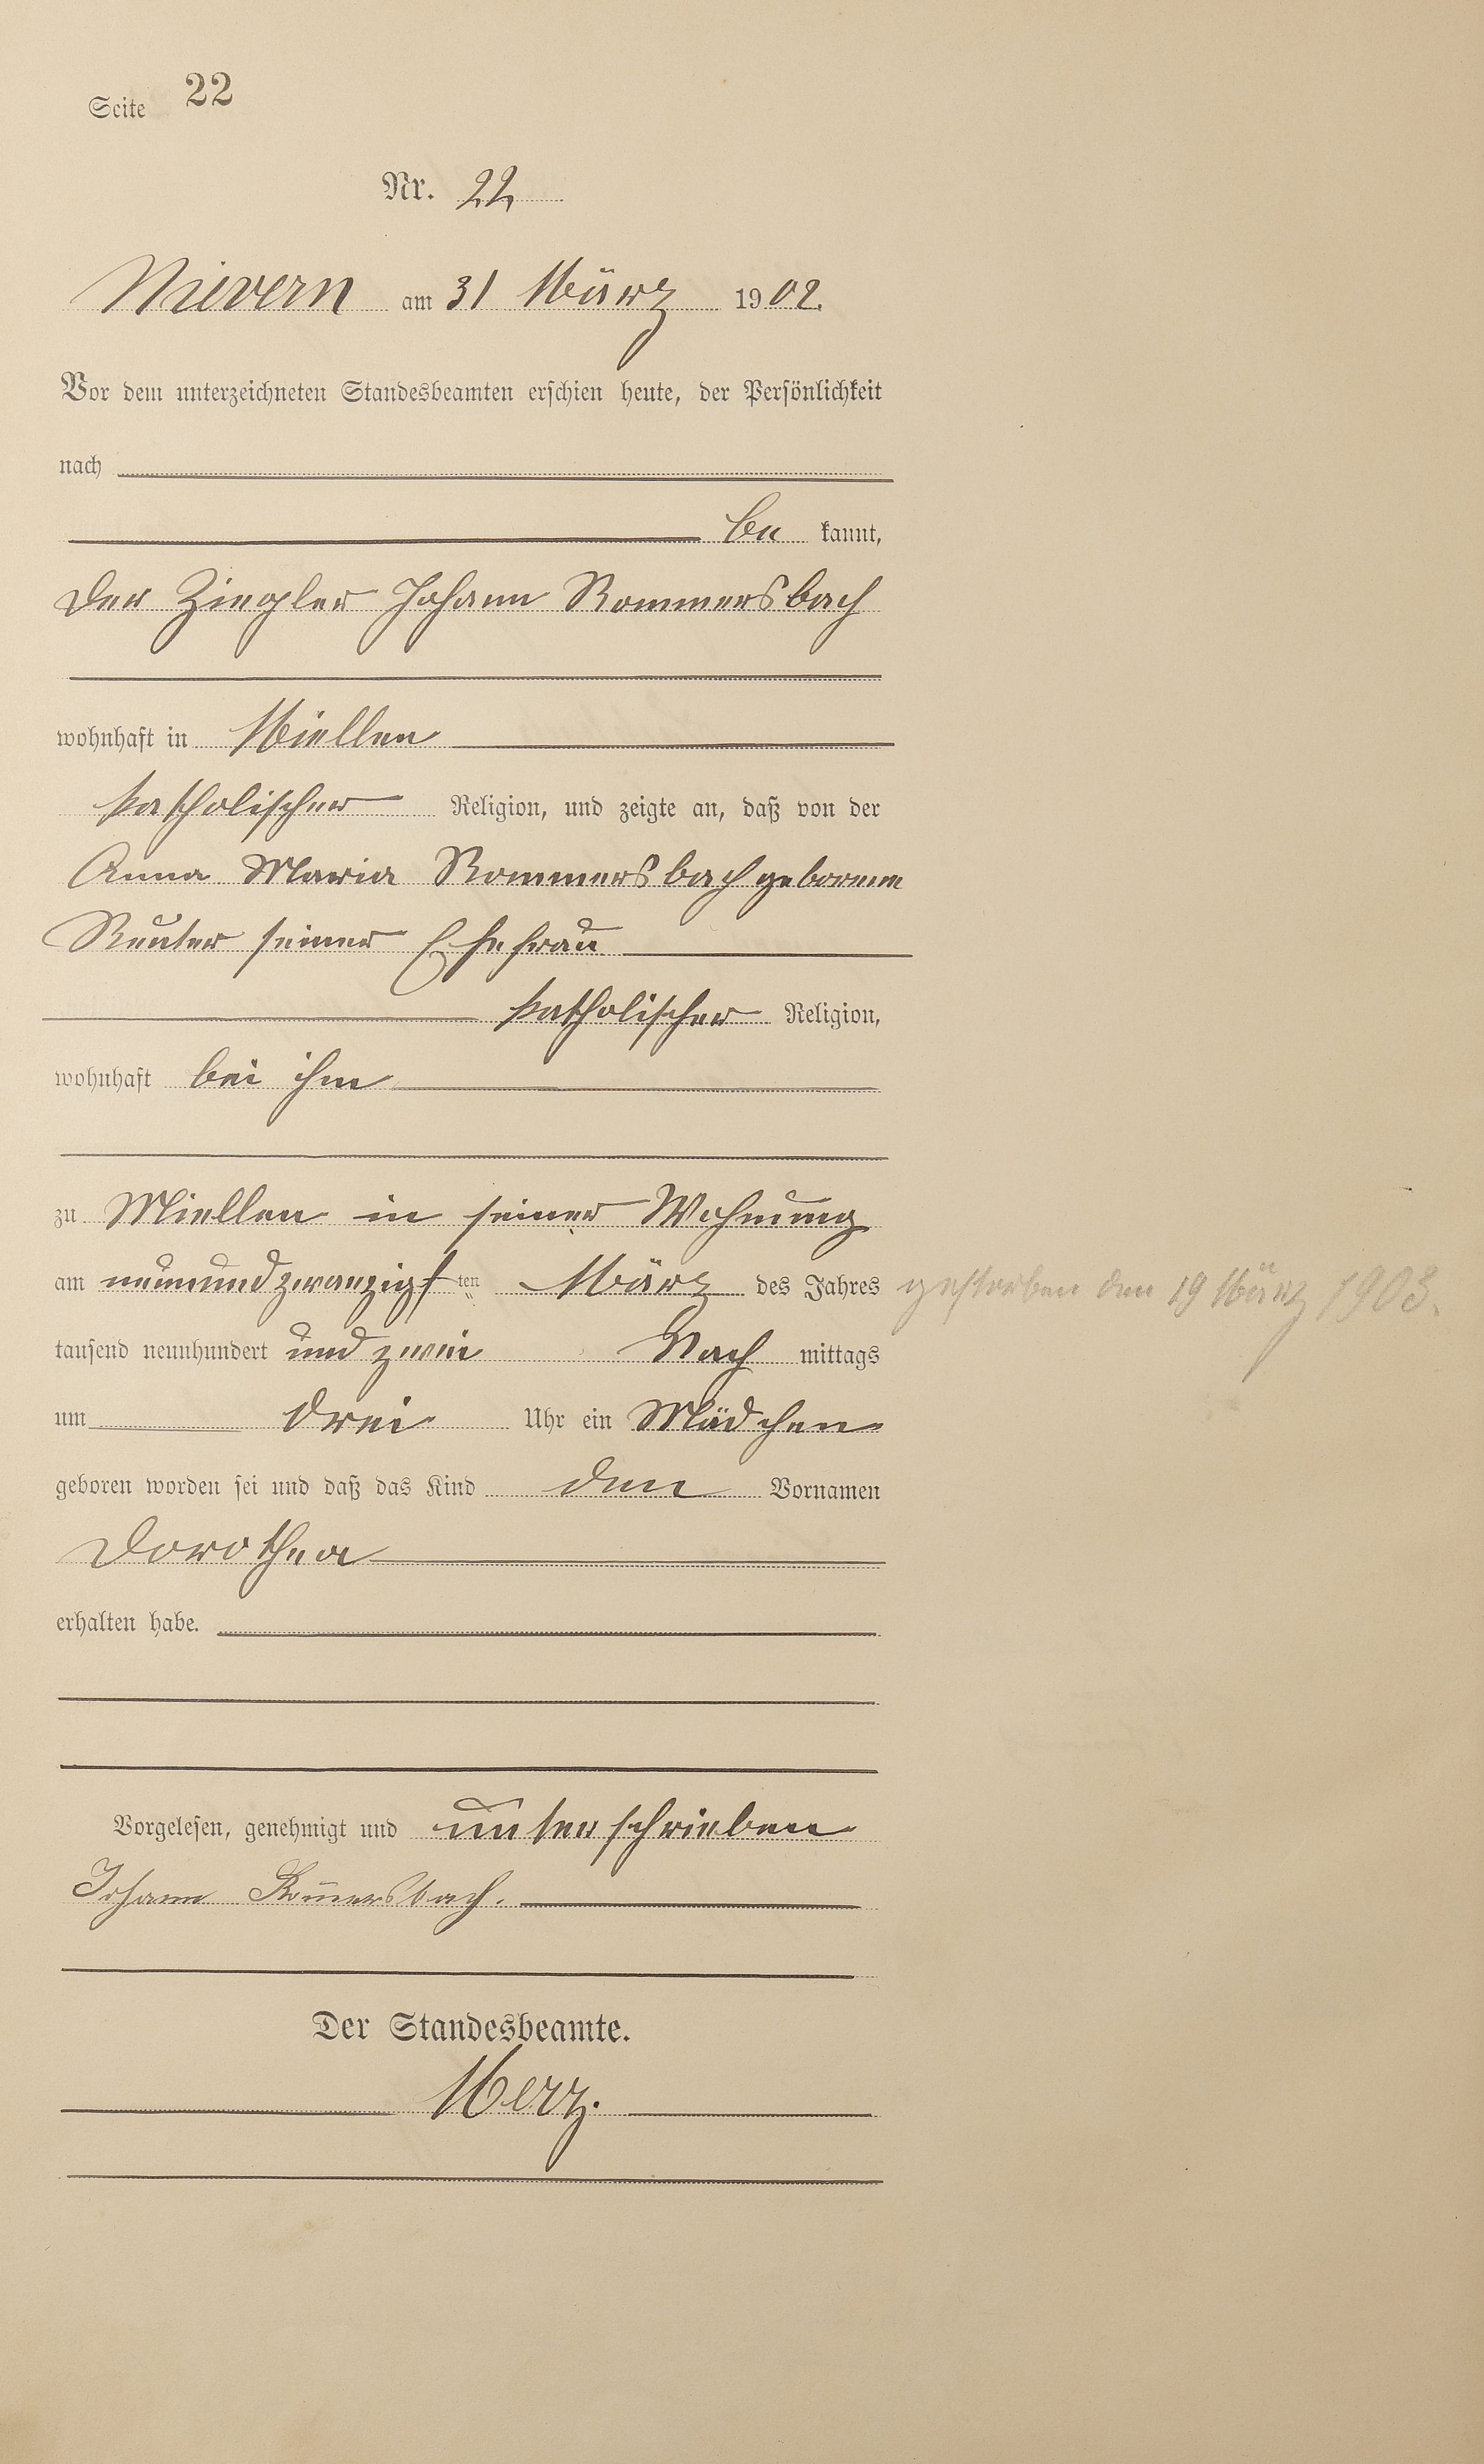 Seite 22
Nr. 22
Nievern am 31 März 1902.
Vor dem unterzeichneten Standesbeamten erschien heute, der Persönlichkeit
nach
be kannt,
der Ziegler Johann Rommersbach
wohnhaft in Miellen
katholischer Religion, und zeigte an, daß von der
Anna Maria Rommersbach geborenen
Reuter seiner Ehefrau
katholischer Religion,
wohnhaft bei ihm
zu Miellen in seiner Wohnung
am neunundzwanzigsten März des Jahres gestorben den 19 März 1903.
tausend neunhundert und zwei Nach mittags
um drei Uhr ein Mädchen
geboren worden sei und daß das Kind den Vornamen
Dorothea
erhalten habe.
Vorgelesen, genehmigt und unterschrieben
Johann Rom̄ersbach.
Der Standesbeamte.
Merz.